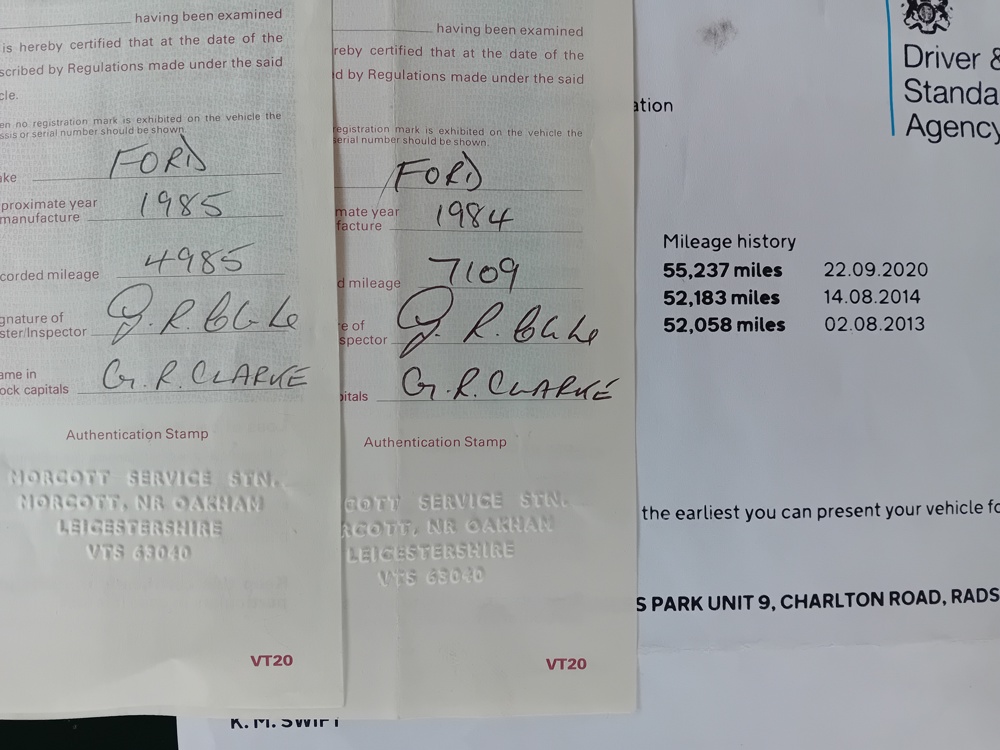 having been examined
is hereby certified that at the date of the
scribed by Regulations made under the said
cle.
en no registration mark is exhibited on the vehicle the
ssis or serial number should be shown.
ake FORD
proximate year
manufacture 1985
corded mileage 4985
gnature of
ster/Inspector G.R. Clarke
ame in
ock capitals G.R. CLARKE
Authentication Stamp
MORCOTT SERVICE STN.
MORCOTT, NR OAKHAM
LEICESTERSHIRE
VTS 63040
VT20
having been examined
reby certified that at the date of the
d by Regulations made under the said
registration mark is exhibited on the vehicle the
serial number should be shown.
FORD
mate year
facture 1984
d mileage 7109
e of
spector G.R. Clarke
pitals G.R. CLARKE
Authentication Stamp
COTT SERVICE STN.
RCOTT, NR OAKHAM
LEICESTERSHIRE
VTS 63040
VT20
Driver &
Standa
Agency
ation
Mileage history
55,237 miles 22.09.2020
52,183 miles 14.08.2014
52,058 miles 02.08.2013
the earliest you can present your vehicle fo
S PARK UNIT 9, CHARLTON ROAD, RADS
K. M. SWIFT